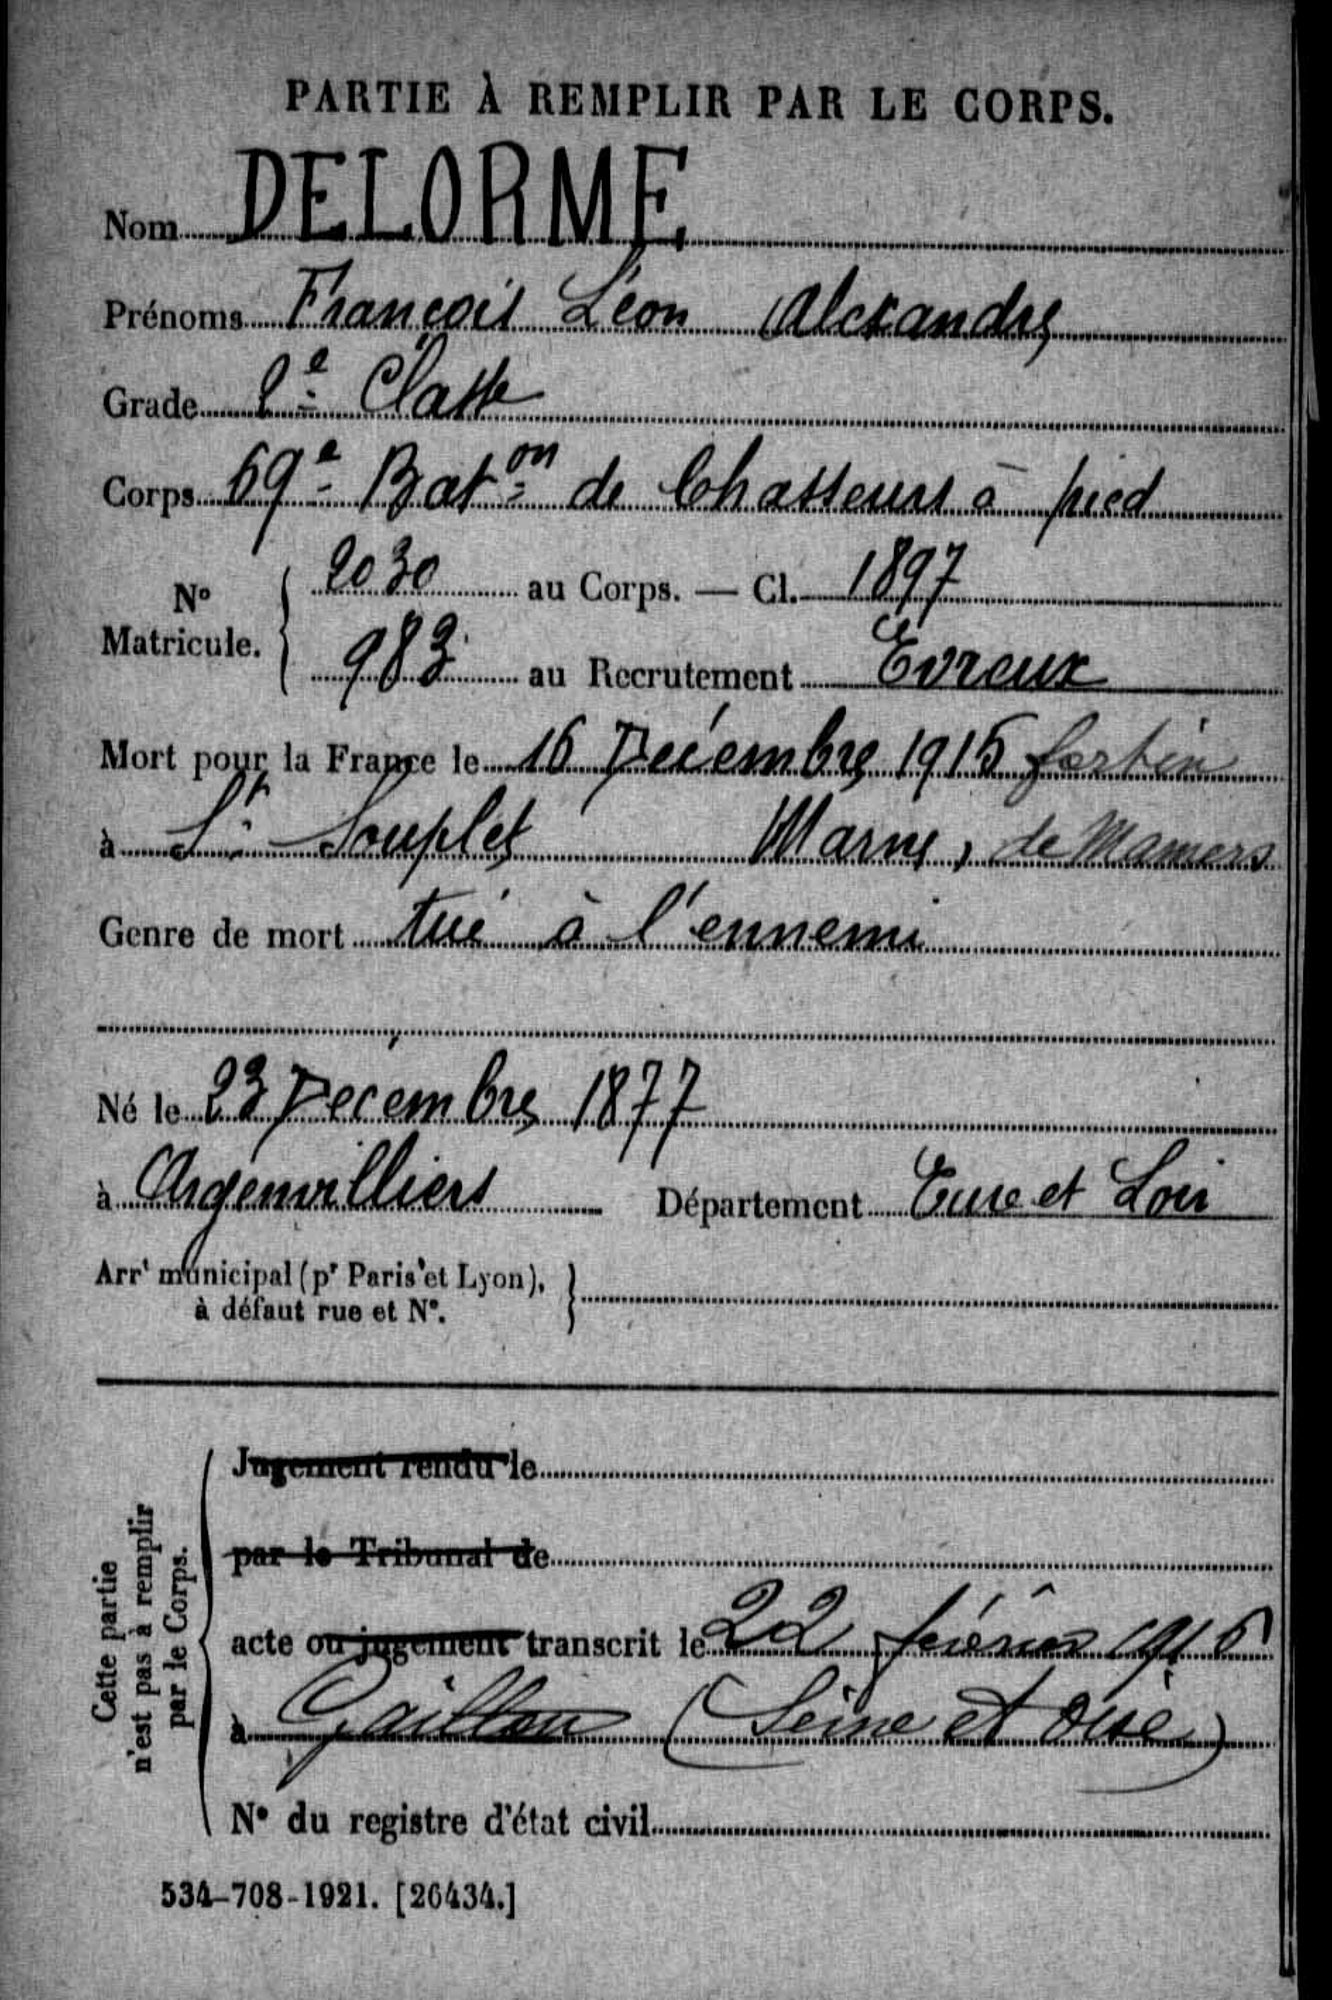 PARTIE À REMPLIR PAR LE CORPS.
Nom DELORME
Prénoms François Léon Alexandre
Grade 2e Classe
Corps 69e Baton de Chasseurs à pied
No Matricule. { 2030 au Corps. — Cl. 1897
983 au Recrutement Evreux
Mort pour la France le 16 Décembre 1915 fortin
à St Souplet Marne, de Mamers
Genre de mort tué à l'ennemi
Né le 23 Décembre 1877
à Argenvilliers Département Eure et Loir
Arrt municipal (pr Paris et Lyon), }
à défaut rue et No.
Cette partie
n'est pas à remplir
par le Corps.
Jugement rendu le
par le Tribunal de
acte ou jugement transcrit le 22 février 1916
à Gaillon (Seine et Oise)
No du registre d'état civil
534-708-1921. [26434.]